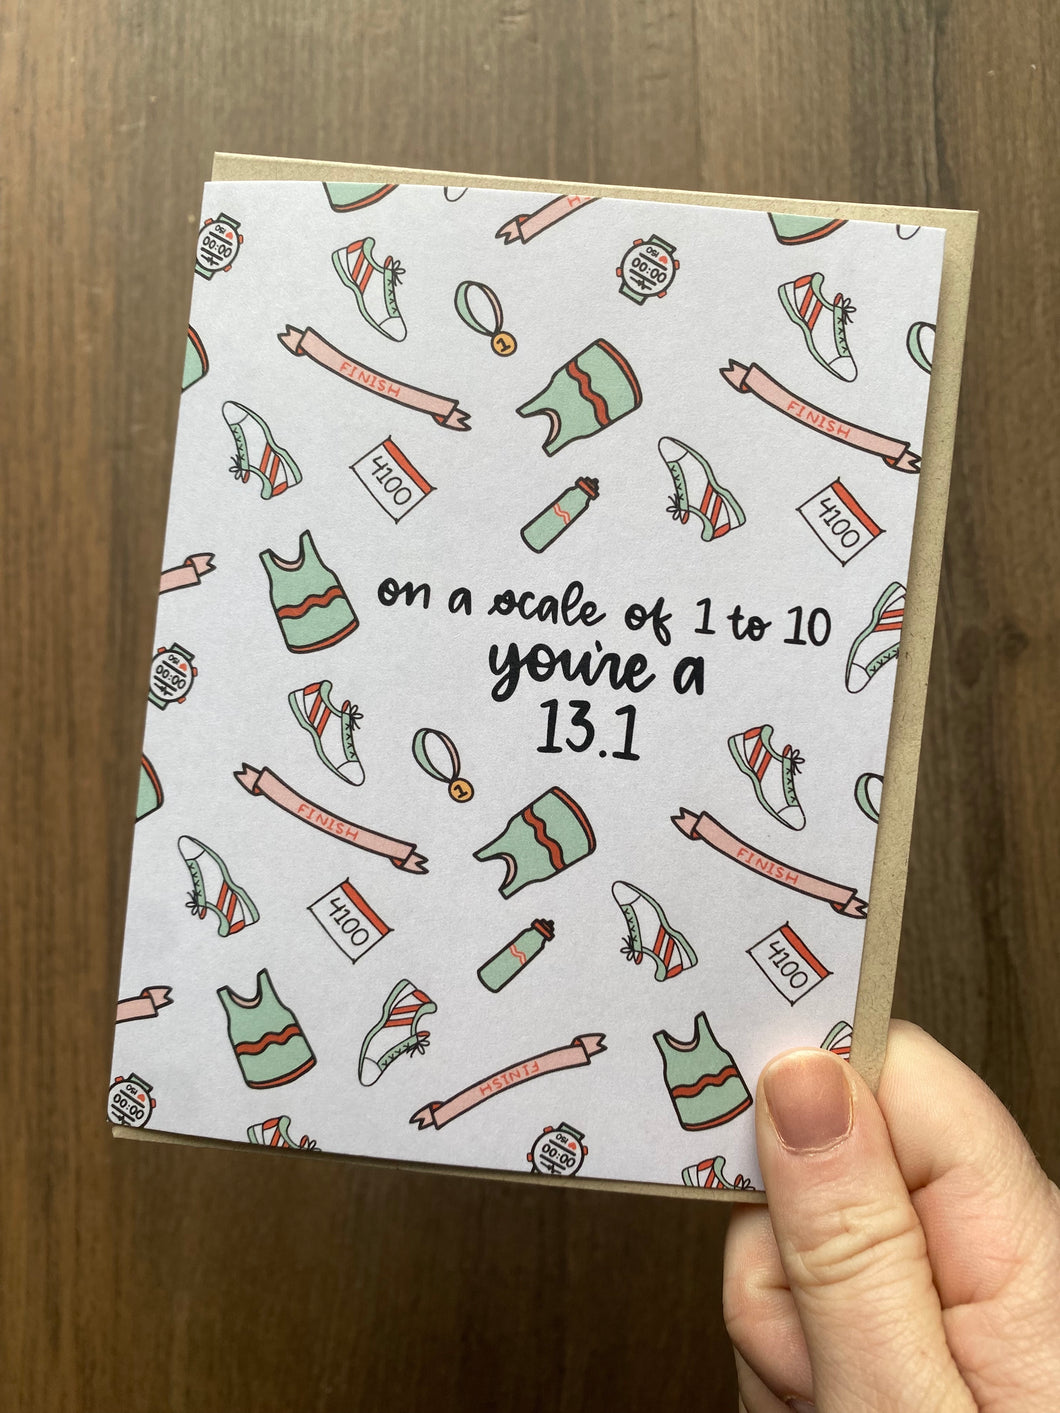 H
150
00:00
150
00:00
1
FINISH
FINISH
4100
4100
on a scale of 1 to 10
you're a
13.1
150
00:00
1
FINISH
FINISH
4100
4100
FINISH
150
00:00
150
00:00